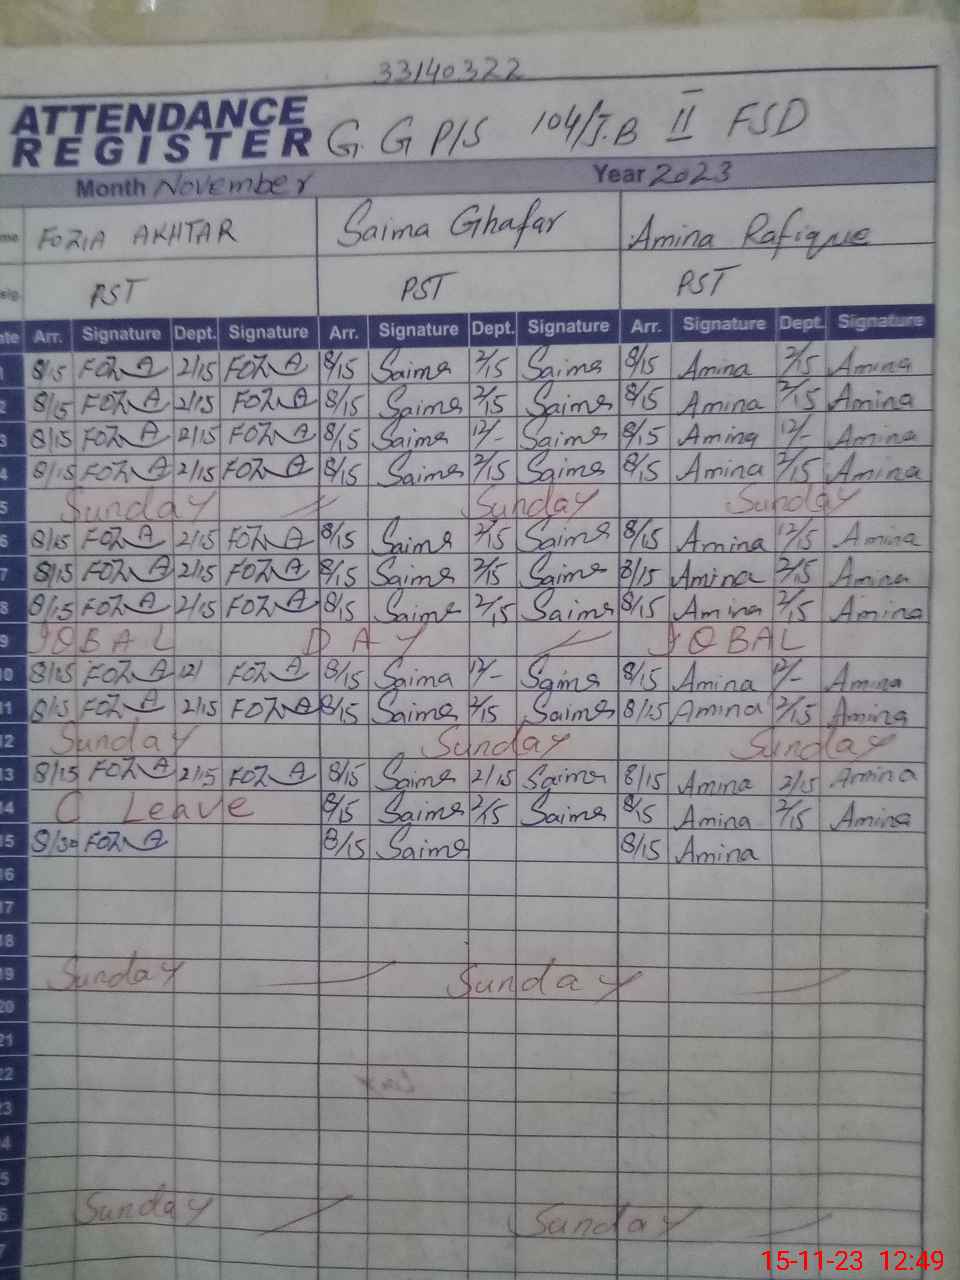 33140322
ATTENDANCE
REGISTER G. G P/S 104/J.B II FSD
Month November Year 2023
FOZIA AKHTAR Saima Ghafar Amina Rafique
PST PST PST
Arr. Signature Dept. Signature Arr. Signature Dept. Signature Arr. Signature Dept. Signature
1 8/15 FOZIA 2/15 FOZIA 8/15 Saima 2/15 Saima 8/15 Amina 2/15 Amina
2 8/15 FOZIA 2/15 FOZIA 8/15 Saima 2/15 Saima 8/15 Amina 2/15 Amina
3 8/15 FOZIA 2/15 FOZIA 8/15 Saima 12/- Saima 8/15 Amina 12/- Amina
4 8/15 FOZIA 2/15 FOZIA 8/15 Saima 2/15 Saima 8/15 Amina 2/15 Amina
5 Sunday Sunday Sunday
6 8/15 FOZIA 2/15 FOZIA 8/15 Saima 2/15 Saima 8/15 Amina 12/15 Amina
7 8/15 FOZIA 2/15 FOZIA 8/15 Saima 2/15 Saima 8/15 Amina 2/15 Amina
8 8/15 FOZIA 2/15 FOZIA 8/15 Saima 2/15 Saima 8/15 Amina 2/15 Amina
9 IQBAL DAY IQBAL
10 8/15 FOZIA 12/ FOZIA 8/15 Saima 12/- Saima 8/15 Amina 12/- Amina
11 8/15 FOZIA 2/15 FOZIA 8/15 Saima 2/15 Saima 8/15 Amina 2/15 Amina
12 Sunday Sunday Sunday
13 8/15 FOZIA 2/15 FOZIA 8/15 Saima 2/15 Saima 8/15 Amina 2/15 Amina
14 C Leave 8/15 Saima 2/15 Saima 8/15 Amina 2/15 Amina
15 8/30 FOZIA 8/15 Saima 8/15 Amina
16
17
18
19 Sunday Sunday
20
21
22
23
4
5
6 Sunday Sunday
7
15-11-23 12:49